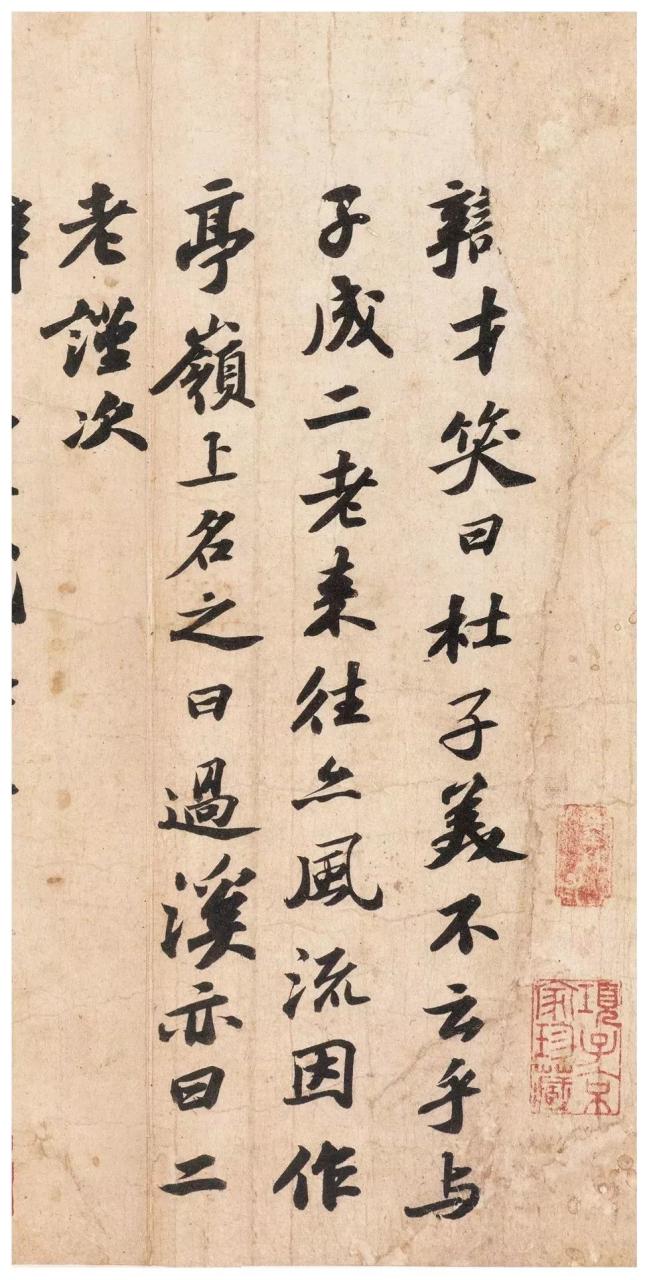 辯才笑曰杜子美不云乎与
子成二老来往亦風流因作
亭嶺上名之曰過溪亦曰二
老謹次
項子京
家珍藏